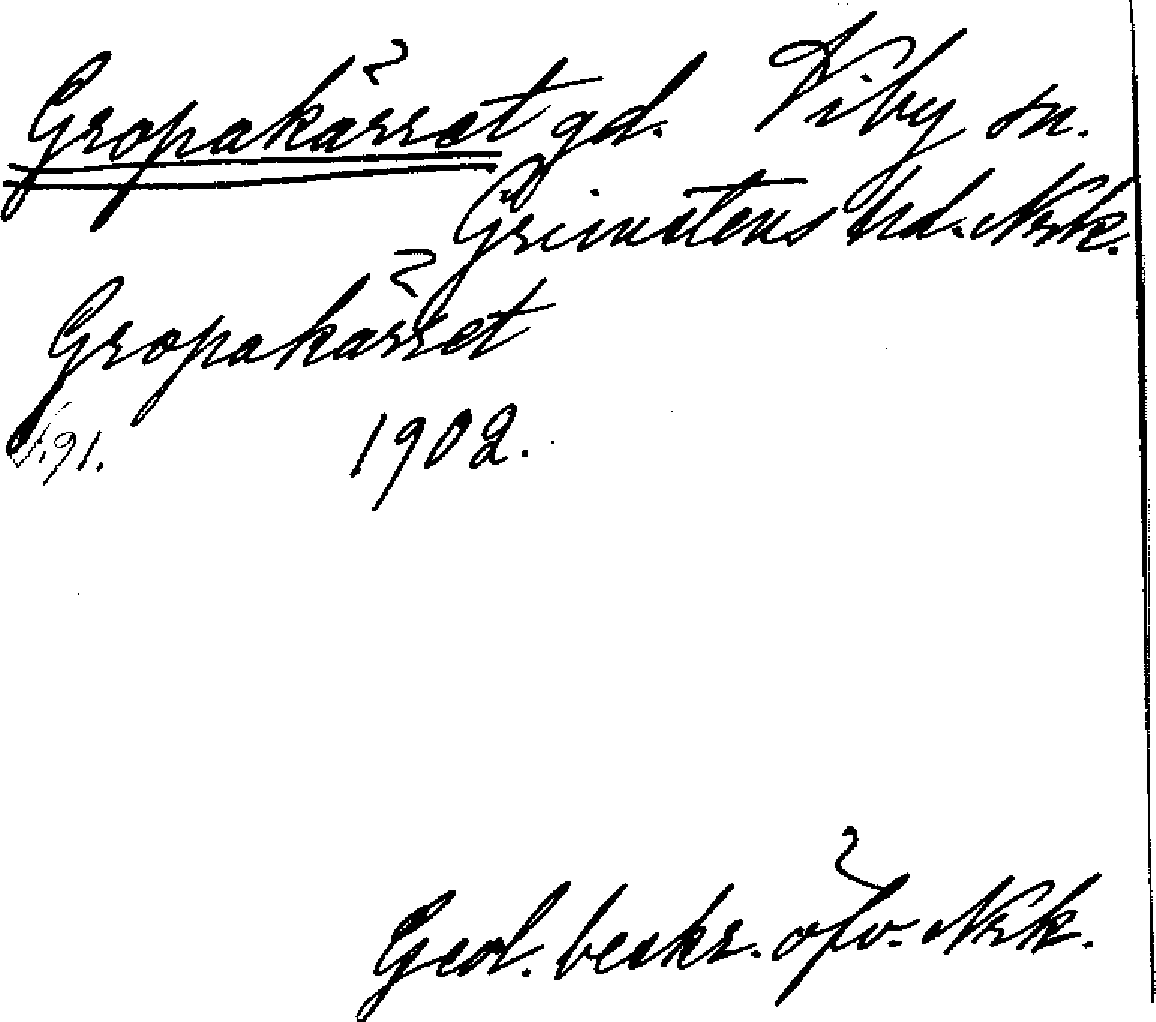 Gropakärret gd. Viby sn.
Grimstens hd. Nrk.
Gropakärret
S.91. 1902.
Geol. beskr. öfv. Nrk.